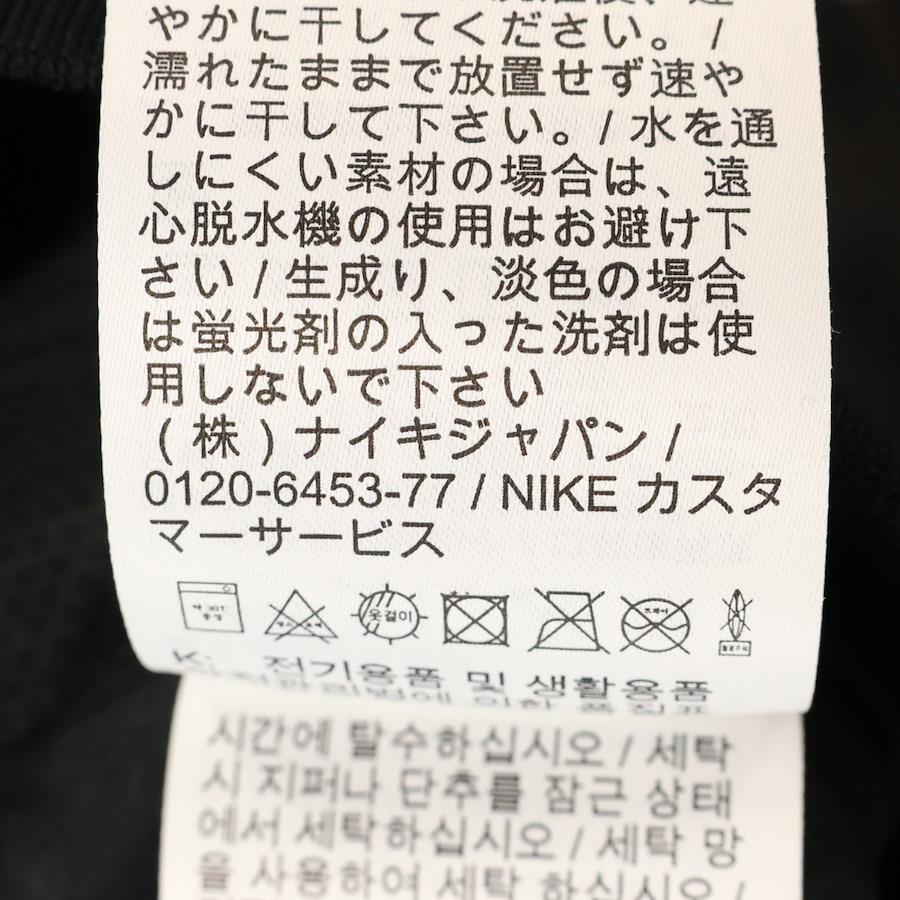 やかに干してください。/
濡れたままで放置せず速や
かに干して下さい。/ 水を通
しにくい素材の場合は、遠
心脱水機の使用はお避け下
さい / 生成り、淡色の場合
は蛍光剤の入った洗剤は使
用しないで下さい
(株)ナイキジャパン /
0120-6453-77 / NIKE カスタ
マーサービス
약 30℃ 중성
옷걸이
드라이
K: 전기용품 및 생활용품
시간에 탈수하십시오 / 세탁
시 지퍼나 단추를 잠근 상태
에서 세탁하십시오 / 세탁 망
을 사용하여 세탁 하십시오 /